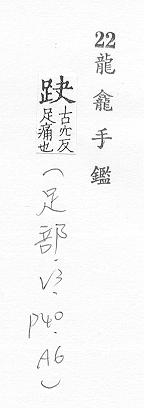 22龍龕手鑑
趹
古穴反
足痛也
(足部.V3.P40.A6)